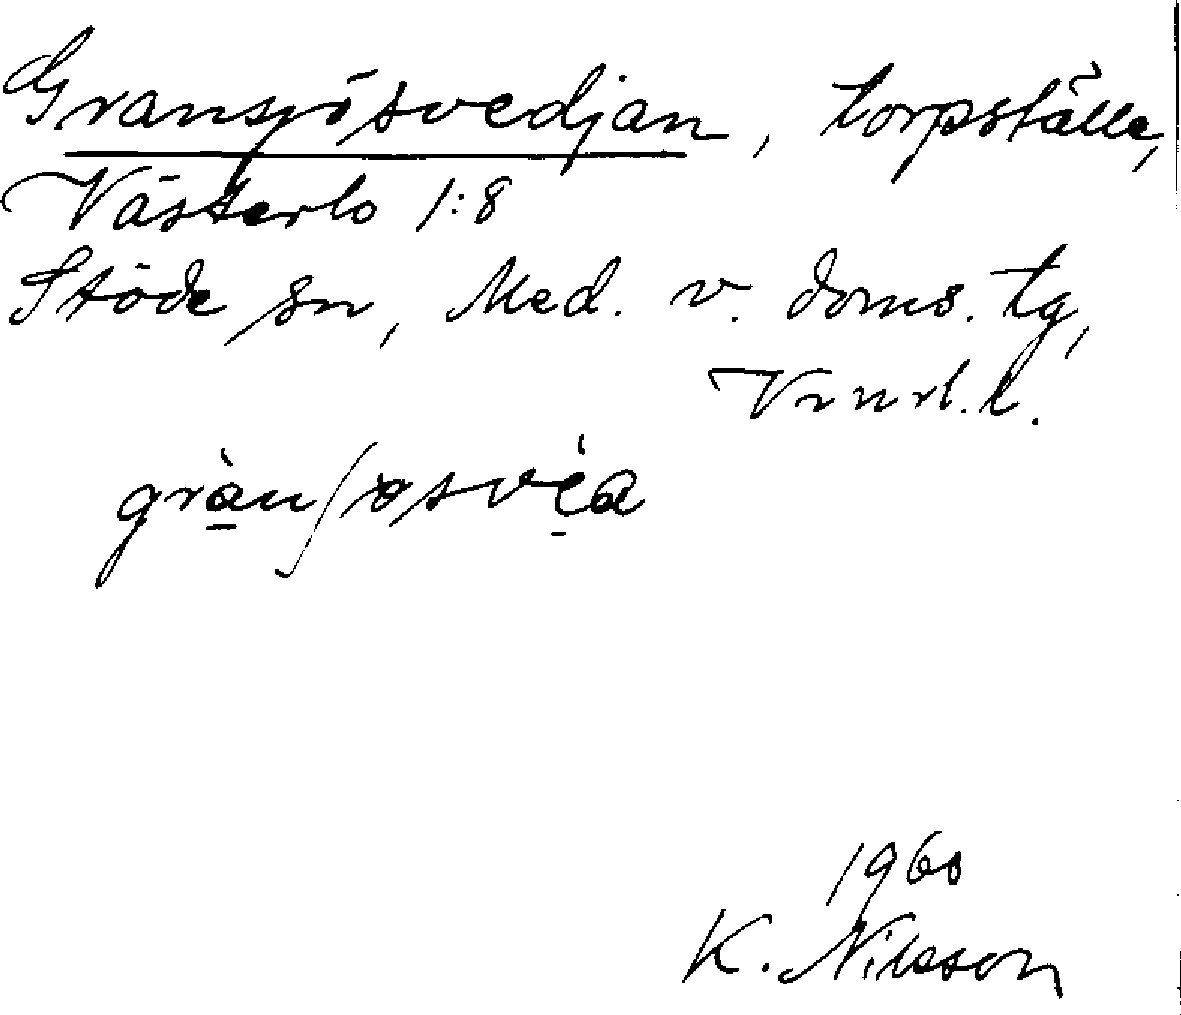 Gransjösvedjan, torpställe,
Västerlo 1:8
Stöde sn, Med. v. doms. tg,
Vrnrl. l.
1960
K. Nilsson